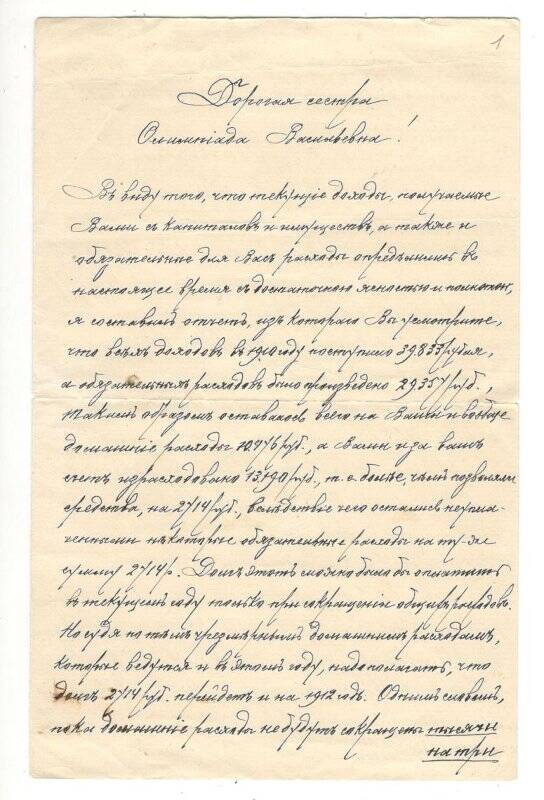 1
Дорогая сестра
Олимпіада Васильевна!
Въ виду того, что текущіе доходы, получаемые
Вами съ капиталовъ и имуществъ, а также и
обязательные для Васъ расходы опредѣлились въ
настоящее время съ достаточною ясностью и полнотою,
я составилъ отчетъ, изъ котораго Вы усмотрите,
что всѣхъ доходовъ въ 1910 году поступило 39833 рубля,
а обязательныхъ расходовъ было произведено 29357 руб.,
такимъ образомъ оставалось всего на Ваши и вообще
домашніе расходы 10.476 руб., а Вами и за Вашъ
счетъ израсходовано 13.190 руб., т.е. болѣе, чѣмъ позволяли
средства, на 2714 руб., вслѣдствіе чего остались неупла-
ченными нѣкоторые обязательные расходы на ту-же
сумму 2714 р. Долгъ этотъ можно было бы оплатить
въ текущемъ году только при сокращеніи общихъ расходовъ.
Но судя по тѣмъ чрезмѣрнымъ домашнимъ расходамъ,
которые ведутся и въ этомъ году, надо полагать, что
долгъ 2714 руб. перейдетъ и на 1912 годъ. Однимъ словомъ,
пока домашніе расходы не будутъ сокращены тысячи
на три